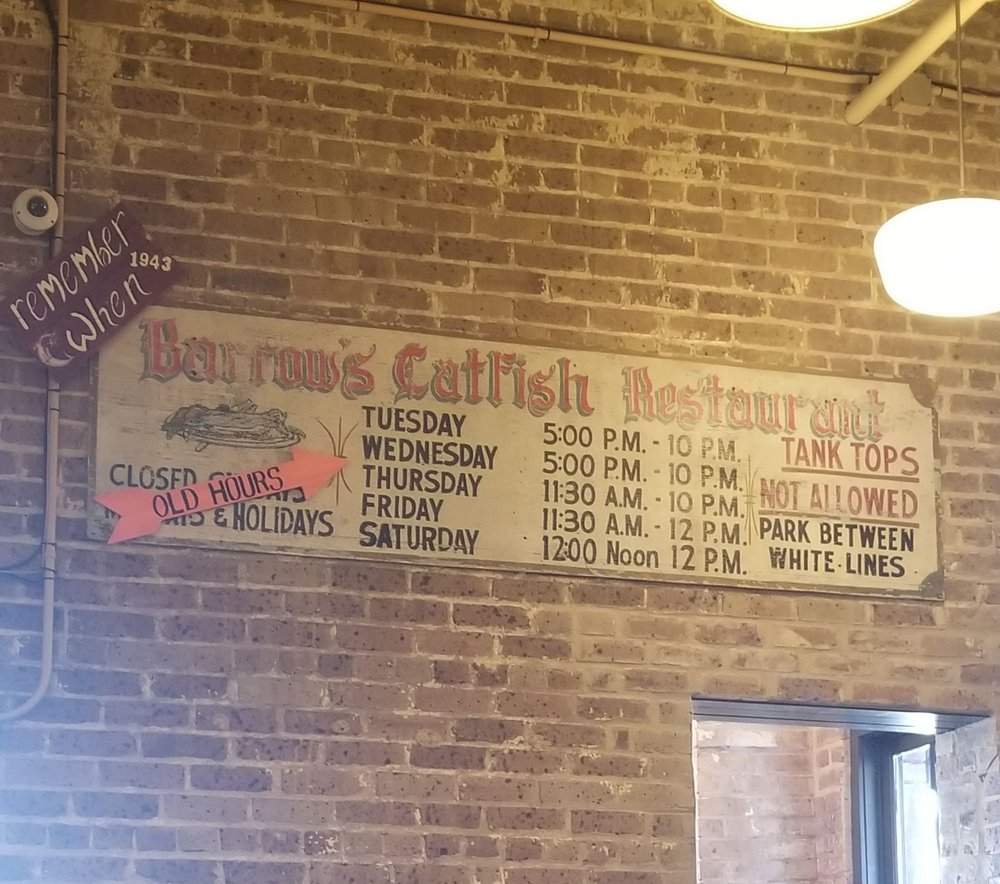 remember
when
1943
Barrow's Catfish Restaurant
CLOSED
OLD HOURS
& HOLIDAYS
TUESDAY 5:00 P.M. - 10 P.M.
WEDNESDAY 5:00 P.M. - 10 P.M.
THURSDAY 11:30 A.M. - 10 P.M.
FRIDAY 11:30 A.M. - 12 P.M.
SATURDAY 12:00 Noon 12 P.M.
TANK TOPS
NOT ALLOWED
PARK BETWEEN
WHITE LINES